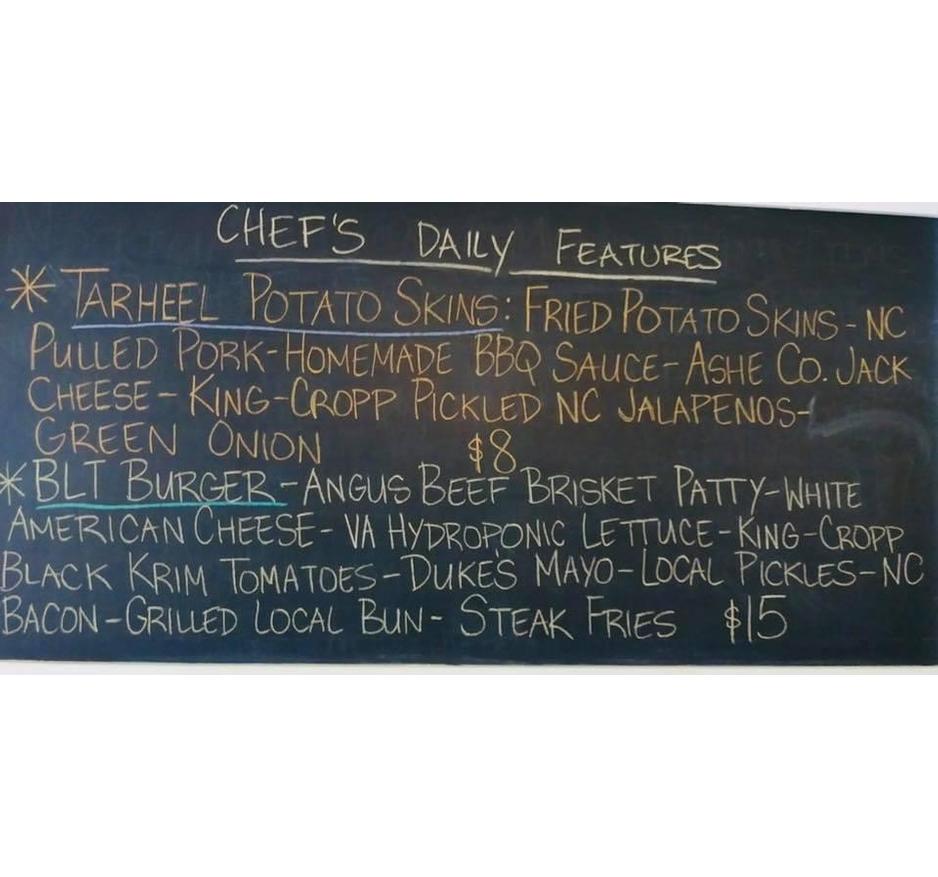 CHEF'S DAILY FEATURES
* TARHEEL POTATO SKINS: FRIED POTATO SKINS - NC
PULLED PORK - HOMEMADE BBQ SAUCE - ASHE CO. JACK
CHEESE - KING-CROPP PICKLED NC JALAPENOS -
GREEN ONION $8
* BLT BURGER - ANGUS BEEF BRISKET PATTY - WHITE
AMERICAN CHEESE - VA HYDROPONIC LETTUCE - KING-CROPP
BLACK KRIM TOMATOES - DUKE'S MAYO - LOCAL PICKLES - NC
BACON - GRILLED LOCAL BUN - STEAK FRIES $15